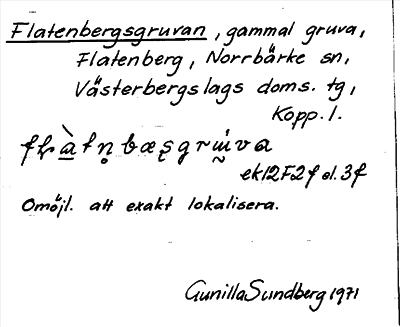 Flatenbergsgruvan, gammal gruva,
Flatenberg, Norrbärke sn,
Västerbergslags doms. tg,
Kopp. l.
ek12F2f el. 3f
Omöjl. att exakt lokalisera.
Gunilla Sundberg 1971